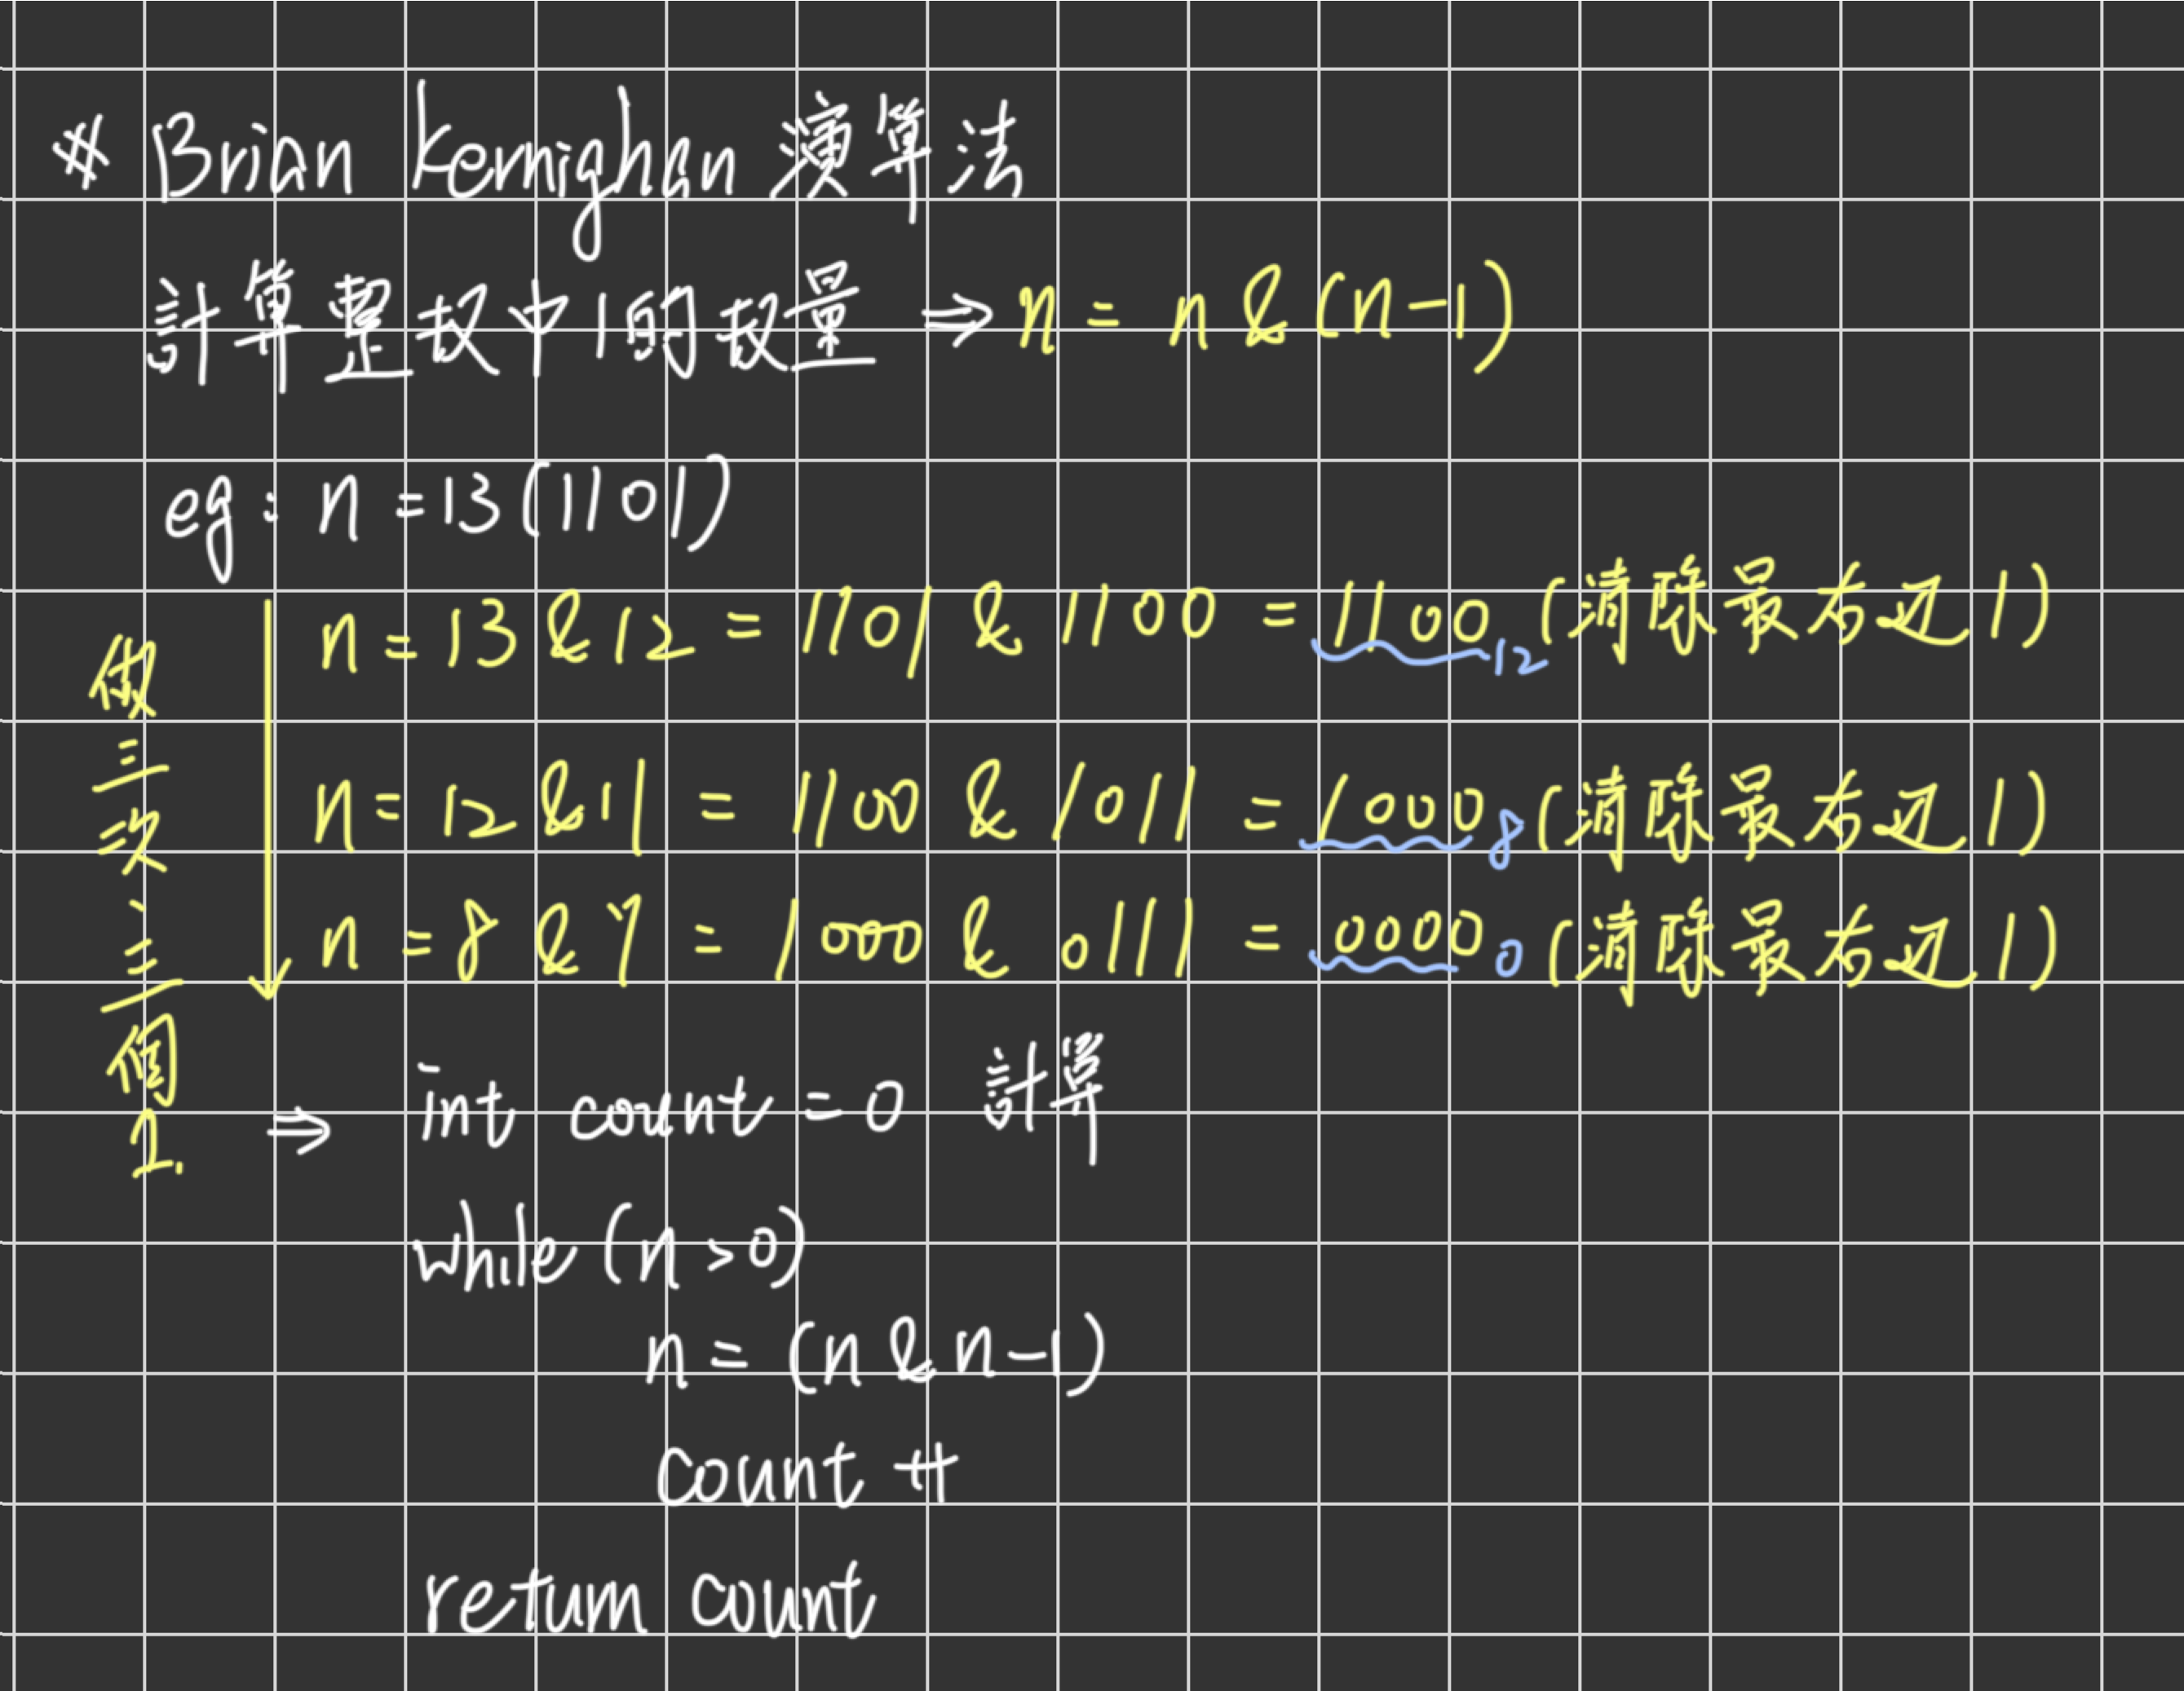 # Brian Kernighan 演算法
計算整叔中1的叔量 ⇒ n = n & (n-1)
eg: n = 13 (1101)
n = 13 & 12 = 1101 & 1100 = 1100 12 (清除最右辺1)
n = 12 & 11 = 1100 & 1011 = 1000 8 (清除最右辺1)
n = 8 & 7 = 1000 & 0111 = 0000 0 (清除最右辺1)
做三次、三個1.
⇒ int count = 0 計算
while (n > 0)
n = (n & n-1)
count ++
return count